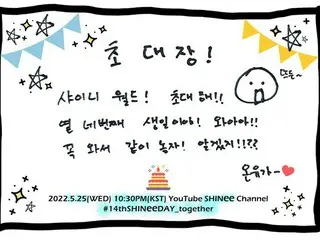 초대장!
뜨든~
샤이니 월드! 초대해!!
열네번째 생일이야! 와아아!!
꼭 와서 같이 놀자! 알겠지!!??
온유가~
2022.5.25(WED) 10:30PM(KST) YouTube SHINee Channel
#14thSHINeeDAY_together